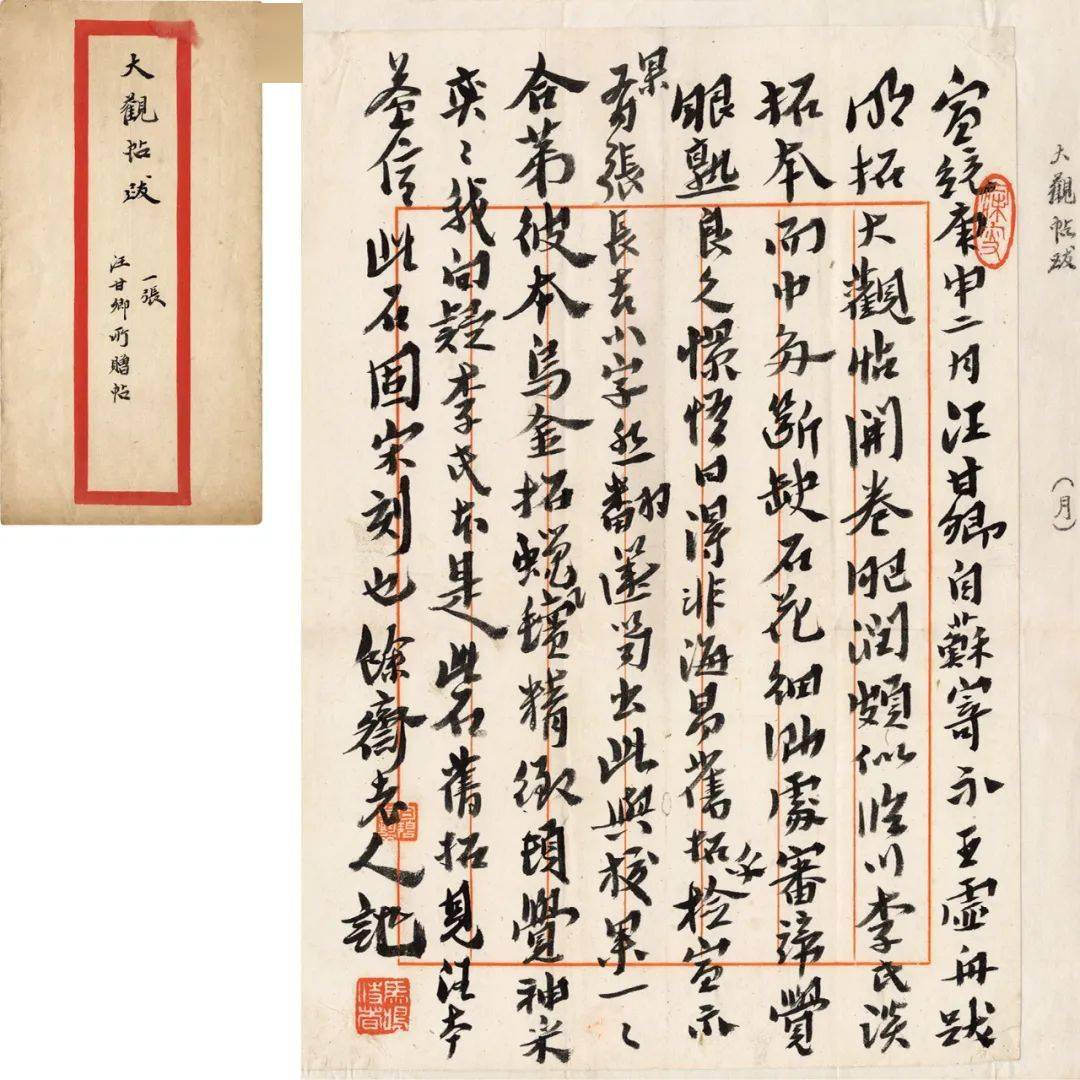 大觀帖跋
一張
汪甘卿所贈帖
大觀帖跋
(月)
宣統庚申二月汪甘卿自蘇寄示王虛舟跋
明拓大觀帖開卷肥潤頗似臨川李氏淡
拓本而中多斷缺石花細泐處審諦覺
眼熟良久憬悟曰得非海昌舊拓乎檢宣示
果有張長吉小字然 笥出此與校果一〻
合第彼本烏金拓蠟 精緻頓覺神采
奕〻我向疑李氏本是此石舊拓見汪本
益信此石固宋刻也 餘齋老人記